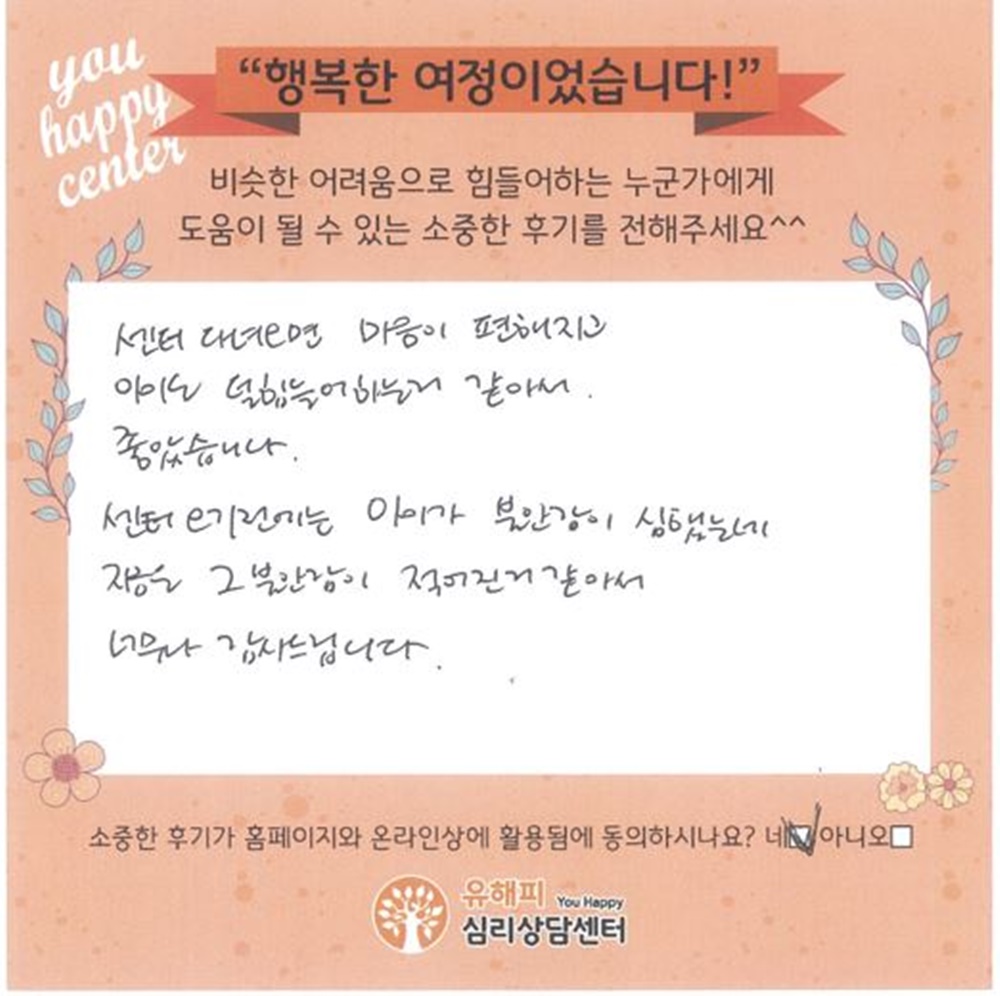 you
happy
center
“행복한 여정이었습니다!”
비슷한 어려움으로 힘들어하는 누군가에게
도움이 될 수 있는 소중한 후기를 전해주세요^^
센터 다녀오면 마음이 편해지고
아이도 덜힘들어하는거 같아서.
좋았습니다.
센터 오기전에는 아이가 불안감이 심했는데
지금은 그 불안감이 적어진거 같아서
너무나 감사드립니다.
소중한 후기가 홈페이지와 온라인상에 활용됨에 동의하시나요? 네 아니오
유해피 You Happy
심리상담센터